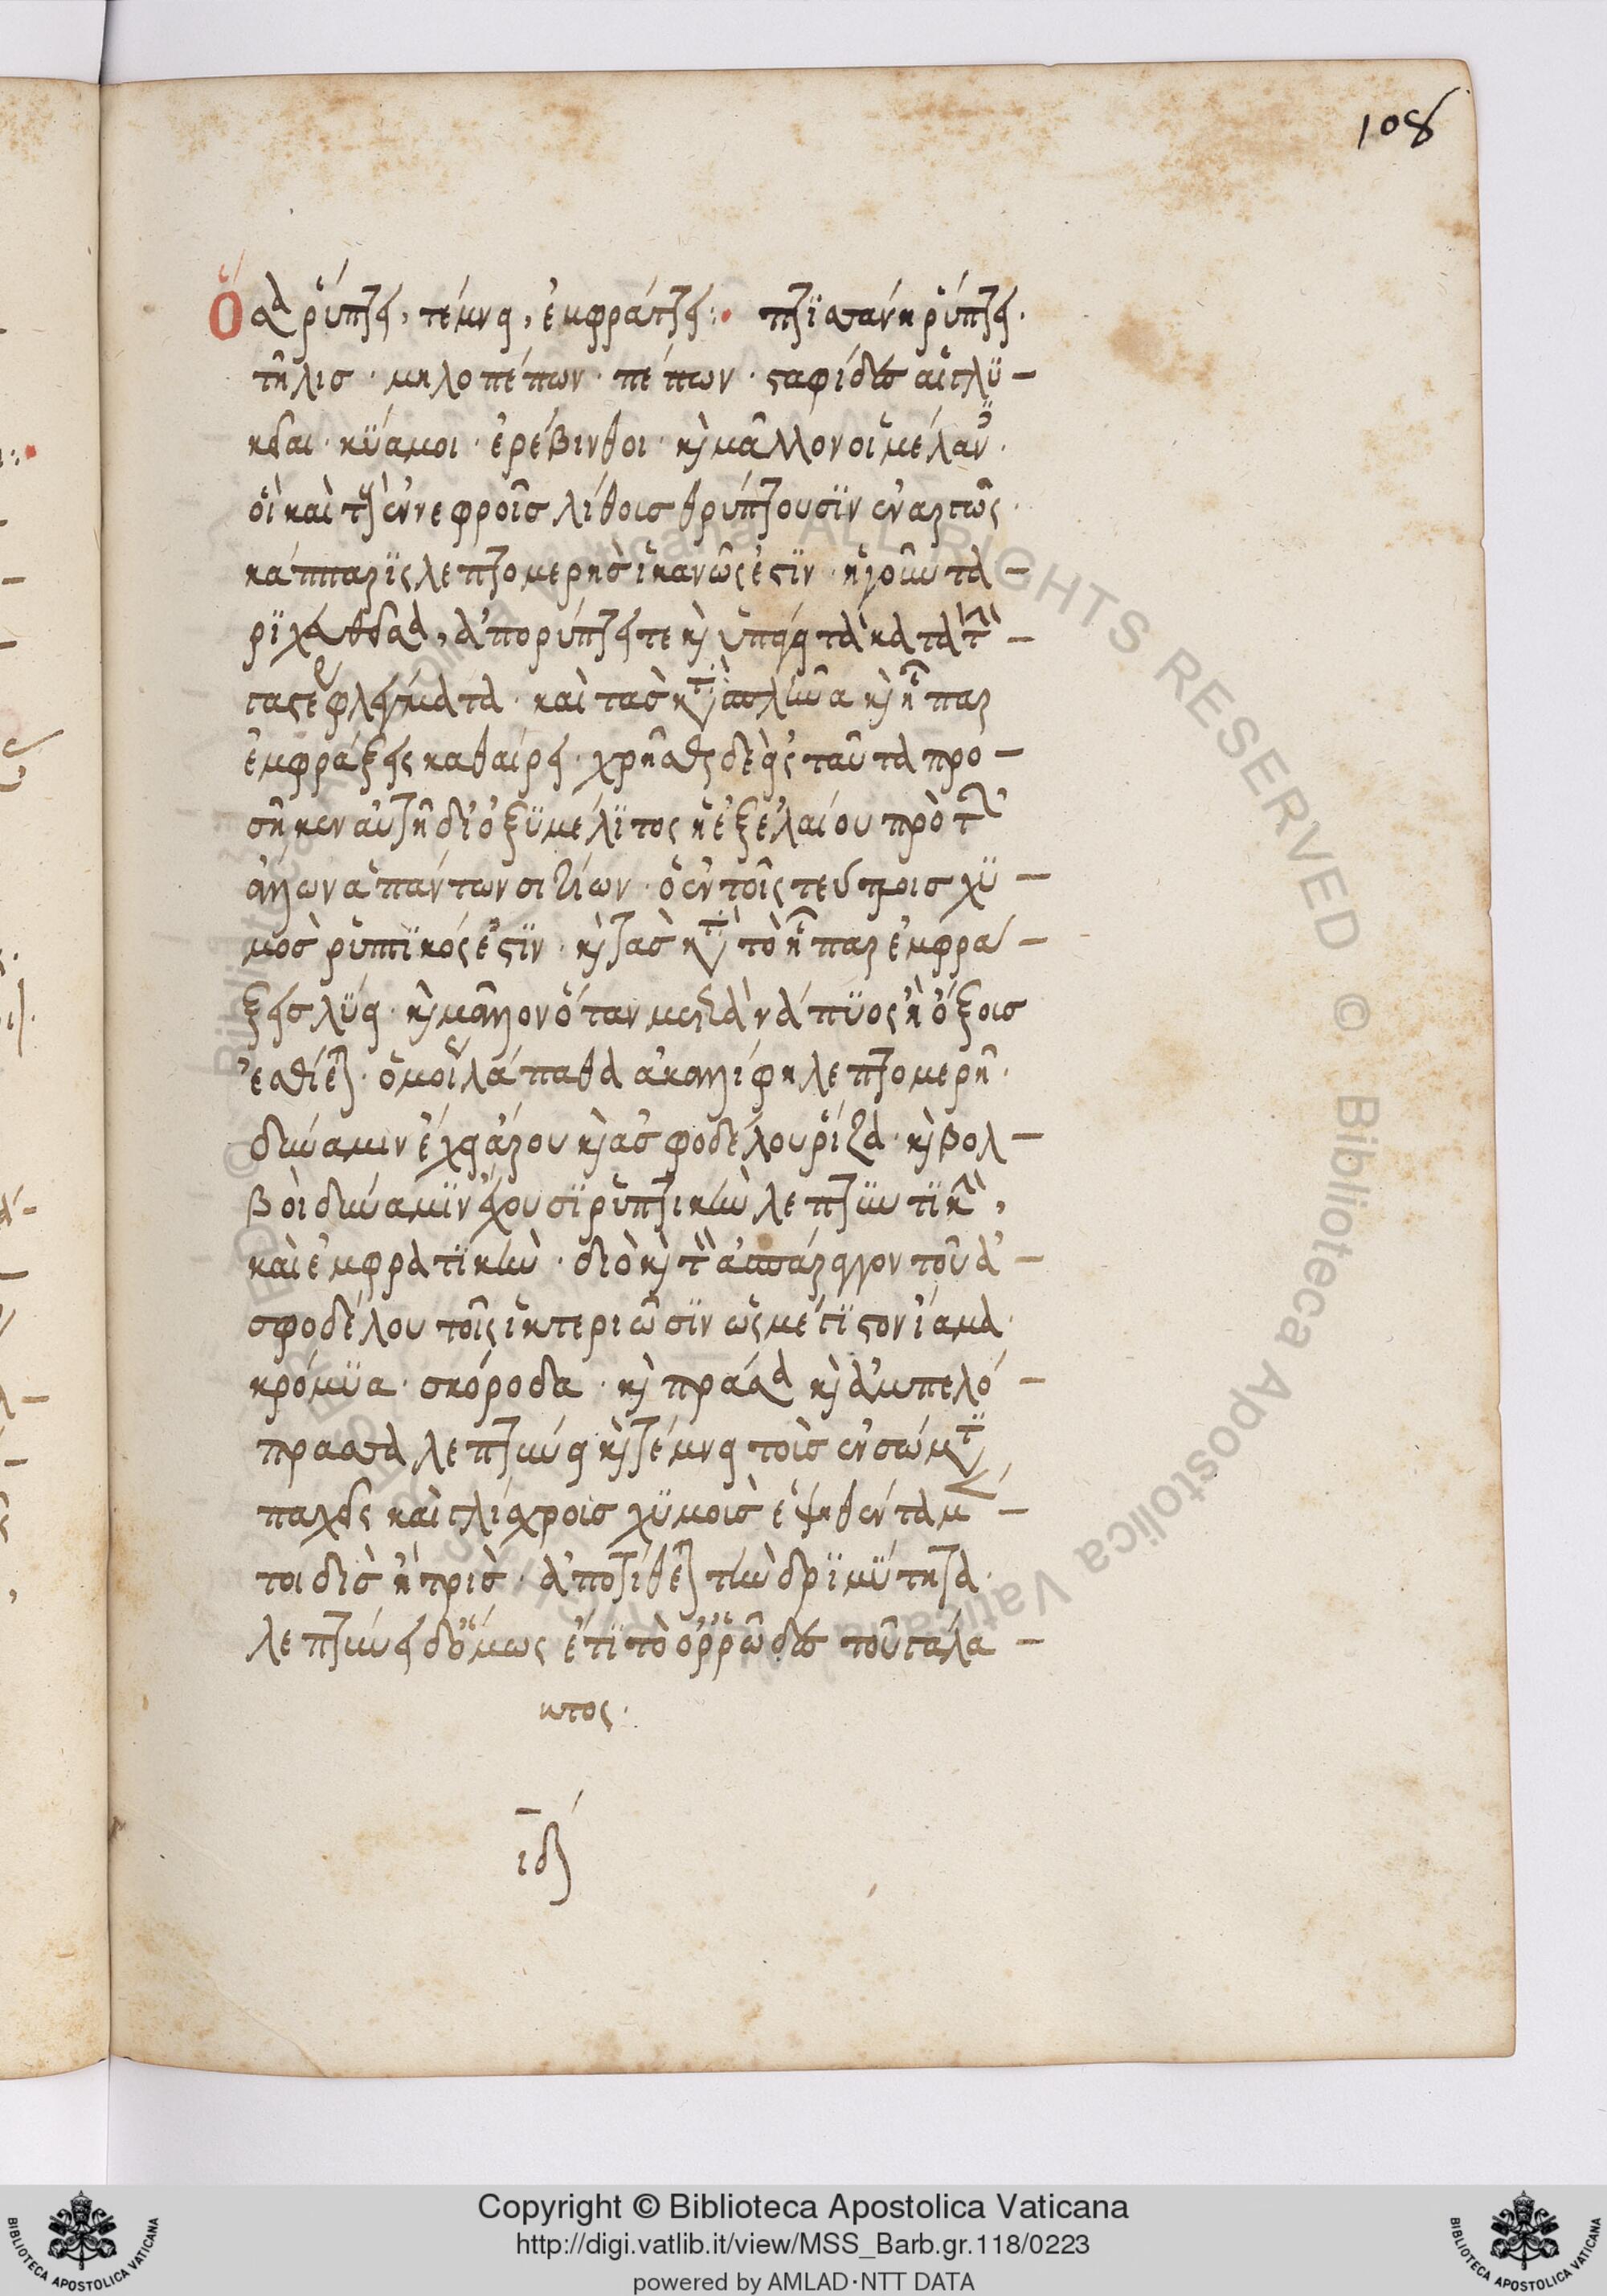 108
Ὅσα ῥύπτει, τέμνει, ἐμφράττει:· πτισάνη ῥύπτει·
τῆλισ · μηλοπέπων · πέπων · σταφίδεσ αἱ γλυ –
κεῖαι · κύαμοι · ἐρέβινθοι · καὶ μᾶλλον οἱ μέλανες ·
οἳ καὶ τοὺς ἐν νεφροῖσ λίθουσ θρύπτουσιν ἐναργῶς ·
κάππαρις λεπτομερὴσ ἱκανῶς ἐστὶν · ἡ γοῦν τα –
ριχευθεῖσα, ἀπορύπτει τε καὶ ὑπάγει τὰ κατὰ τὴν –
γαστέρα φλέγματα · καὶ τὰσ κατὰ σπλῆνα καὶ ἧπαρ
ἐμφράξεις καθαίρει · χρῆσθαι δὲ εἰς ταῦτα προ –
σῆκεν αὐτῆ δι' ὀξυμέλιτος ἢ ἐξ ἐλαίου πρὸ τῶν
ἄλλων ἁπάντων σιτίων · ὁ ἐν τοῖς τεύτλοισ χυ –
μὸσ ῥυπτικός ἐστιν · καὶ τὰσ κατὰ τὸ ἧπαρ ἐμφρά –
ξεισ λύει · καὶ μᾶλλον ὅταν μετὰ νάπυος ἢ ὄξουσ
ἐσθίεται · ὁμοίως λάπαθα ἀκαλήφη λεπτομερῆ ·
δύναμιν ἔχει ἄρου καὶ ἀσφοδέλου ῥίζα · καὶ βολ –
βοὶ δύναμιν ἔχουσι ῥυπτικὴν λεπτυντικὴν,
καὶ ἐμφρακτικὴν · διὸ καὶ τὸν ἀσπάραγον τοῦ ἀ –
σφοδέλου τοῖς ἰκτεριῶσιν ὡς μέγιστον ἴαμα ·
κρόμυα · σκόροδα · καὶ πράσα καὶ ἀμπελό –
πρασα λεπτύνει καὶ τέμνει τοὺσ ἐν σώματι
παχεῖς καὶ γλίσχρουσ χυμοὺσ ἑψηθέντα μέν –
τοι δὶσ ἢ τρὶσ · ἀποτίθεται τὴν δριμύτητα ·
λεπτύνει δ' ὅμως ἔτι τὸ ὀρρῶδεσ τοῦ γάλα –
κτος ·
ιδ
Copyright © Biblioteca Apostolica Vaticana
http://digi.vatlib.it/view/MSS_Barb.gr.118/0223
powered by AMLAD·NTT DATA